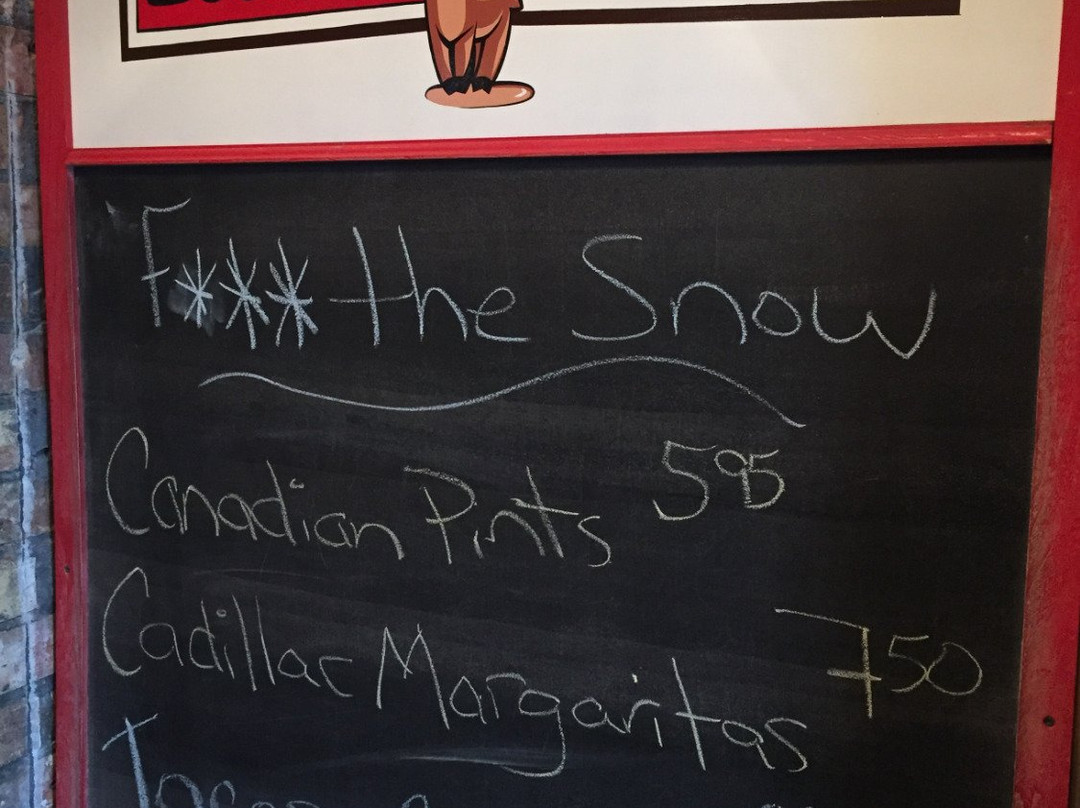 F*** the Snow
Canadian Pints 595
Cadillac Margaritas 750